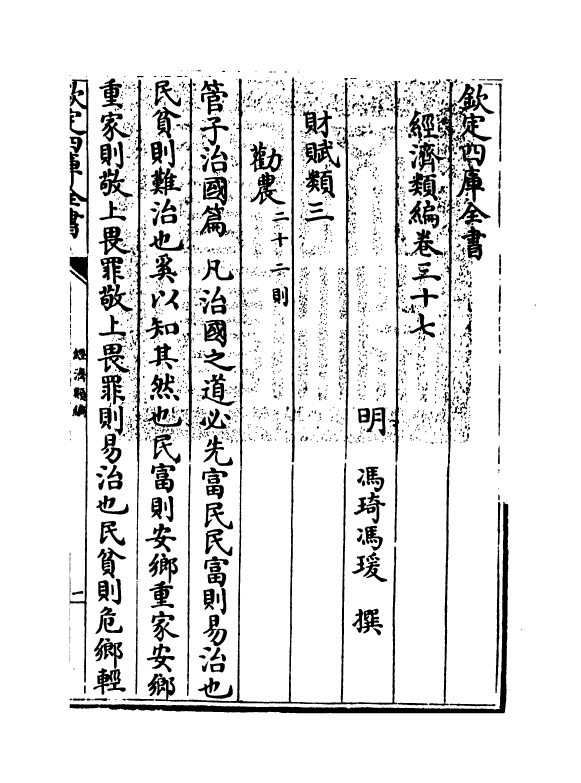 欽定四庫全書
經濟類編卷三十七
明 馮琦馮瑗 撰
財賦類三
勸農二十二則
管子治國篇 凡治國之道必先富民民富則易治也
民貧則難治也奚以知其然也民富則安鄉重家安鄉
重家則敬上畏罪敬上畏罪則易治也民貧則危鄉輕
欽定四庫全書
經濟類編